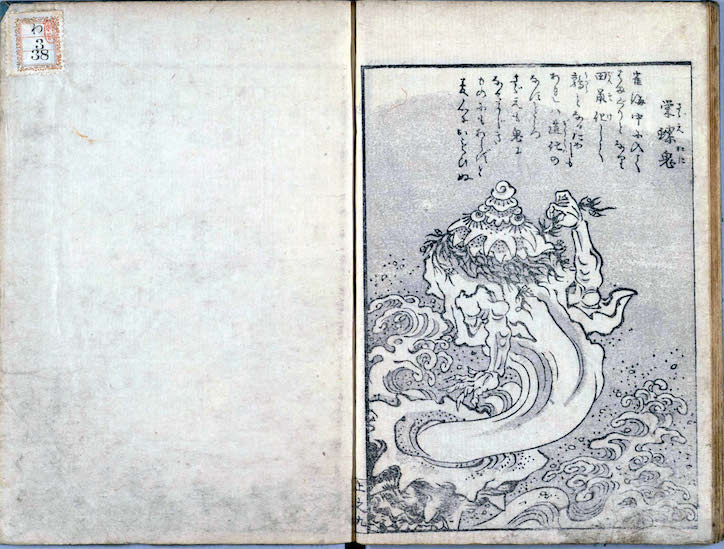 わ
3
38
栄螺鬼
さゞえおに
雀海中に入て
はまぐりとなり
田鼠化して
鶉となるためしも
あれハ造化の
なすところ
さゞえも鬼に
なるまじき
ものにもあらずと
夢心におもひぬ